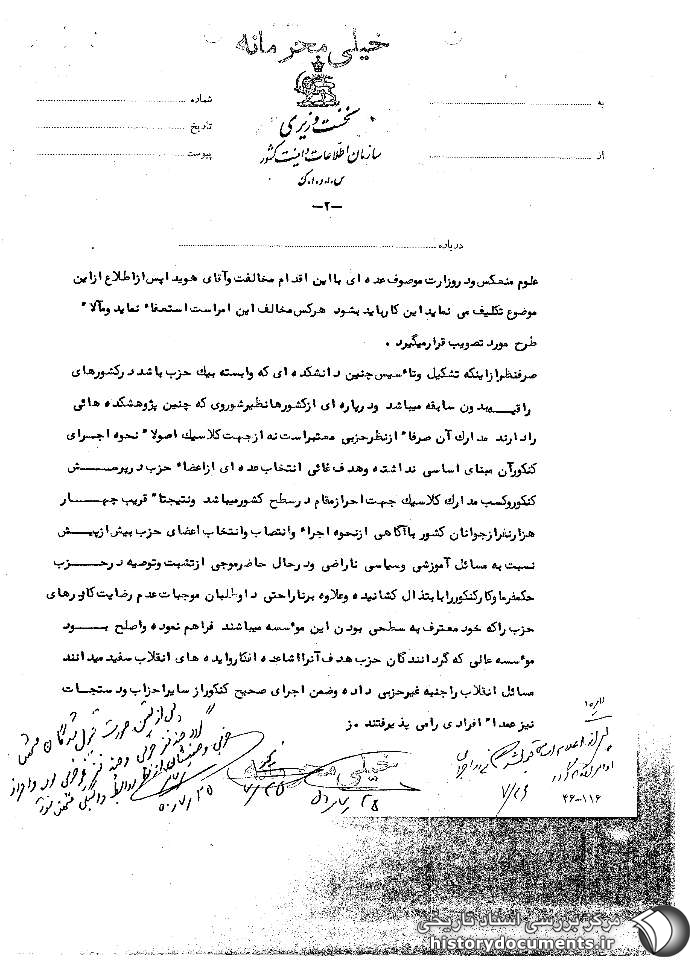 خیلی محرمانه
نخست وزیری
سازمان اطلاعات و امنیت کشور
س.ا.و.ا.ک
شماره
تاریخ
پیوست
به
از
-۲-
درباره
علوم منعکس ودروزارت موصوف عده ای بااین اقدام مخالفت وآقای هویداپس ازاطلاع ازاین
موضوع تکلیف می نماید این کارباید بشود هرکس مخالف این امراست استعفاء نماید ومآلا"
طرح مورد تصویب قرارمیگیرد .
صرفنظرازاینکه تشکیل وتاءسیس چنین دانشکده ای که وابسته بیک حزب باشد درکشورهای
راقیه بدون سابقه میباشد ودرپاره ای ازکشورها نظیرشوروی که چنین پژوهشکده هائی
رادارند مدارک آن صرفا" ازنظرحزبی معتبراست نه ازجهت کلاسیک اصولا" نحوه اجرای
کنکورآن مبنای اساسی نداشته وهدف غائی انتخاب عده ای ازاعضاء حزب درپوشش
کنکوروکسب مدارک کلاسیک جهت احرازمقام درسطح کشورمیباشد ونتیجتا" قریب چهار
هزارنفرازجوانان کشور باآگاهی ازنحوه اجراء وانتصاب وانتخاب اعضای حزب بیش ازپیش
نسبت به مسائل آموزشی وسیاسی ناراضی ودرحال حاضرموجی ازتشبث وتوصیه درحزب
حکمفرما وکارکنکوررا بابتذال کشانیده وعلاوه برناراحتی داوطلبان موجبات عدم رضایت کادرهای
حزب راکه خود معترف به سطحی بودن این موءسسه میباشند فراهم نموده واصلح بود
موءسسه عالی که گردانندگان حزب هدف آنرااشاعه افکاروایده های انقلاب سفید میدانند
مسائل انقلاب راجنبه غیرحزبی داده وضمن اجرای صحیح کنکورازسایراحزاب ودستجات
نیز عمدا" افرادی رامی پذیرفتند . ز
خیلی محرمانه
۷/۲۵
۵۰/۷/۲۵
۷/۲۶
۴۶-۱۱۶
مرکز بررسی اسناد تاریخی
historydocuments.ir